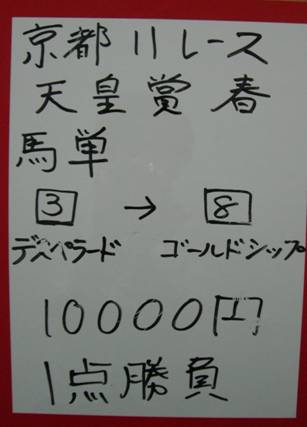 京都11レース
天皇賞春
馬単
3 → 8
デスペラード ゴールドシップ
10000円
1点勝負